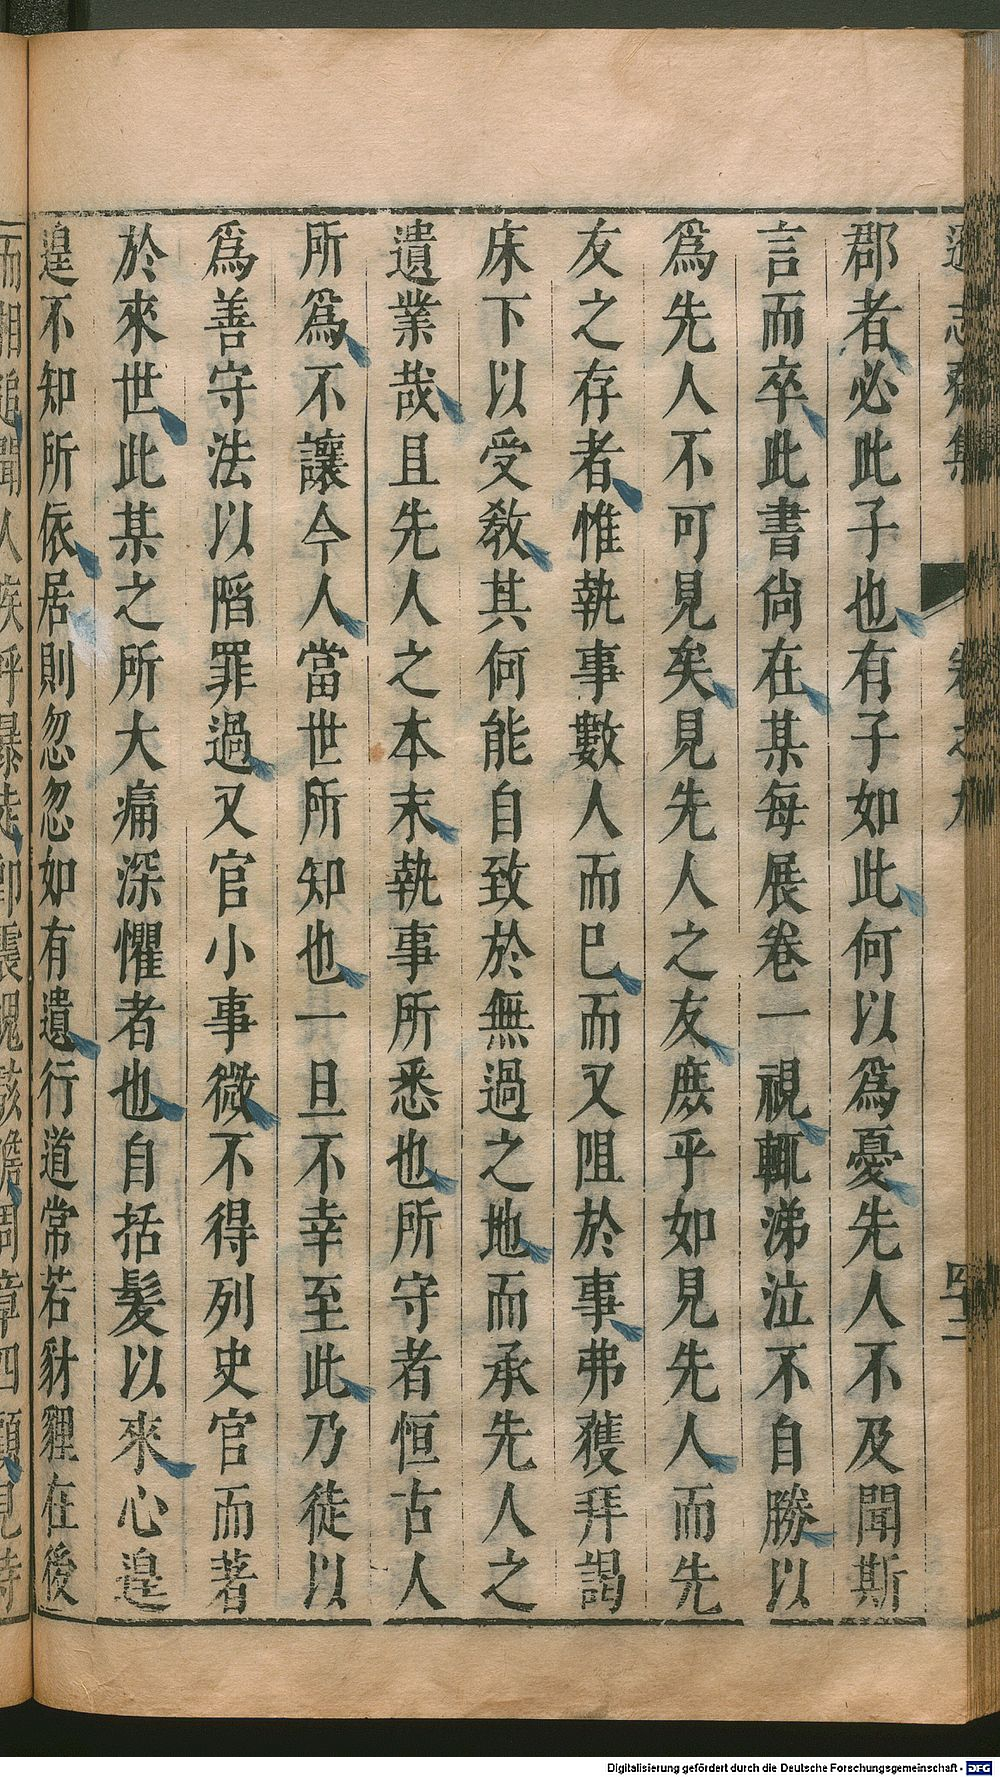 遜志齋集 卷之九 四十二
郡者必此子也有子如此何以爲憂先人不及聞斯
言而卒此書尙在某每展卷一視輒涕泣不自勝以
爲先人不可見矣見先人之友庶乎如見先人而先
友之存者惟執事數人而已而又阻於事弗獲拜謁
床下以受敎其何能自致於無過之地而承先人之
遺業哉且先人之本末執事所悉也所守者恒古人
所爲不讓今人當世所知也一旦不幸至此乃徒以
爲善守法以陷罪過又官小事微不得列史官而著
於來世此某之所大痛深懼者也自括髮以來心遑
遑不知所依居則忽忽如有遺行道常若豺貍在後
Digitalisierung gefördert durch die Deutsche Forschungsgemeinschaft - DFG